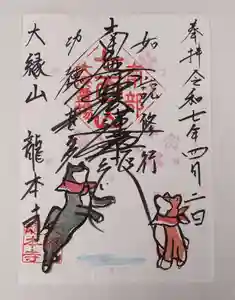 奉拝 令和七年四月二日
如説修行
南無妙法蓮華経
功徳甚多
大縁山 龍本寺